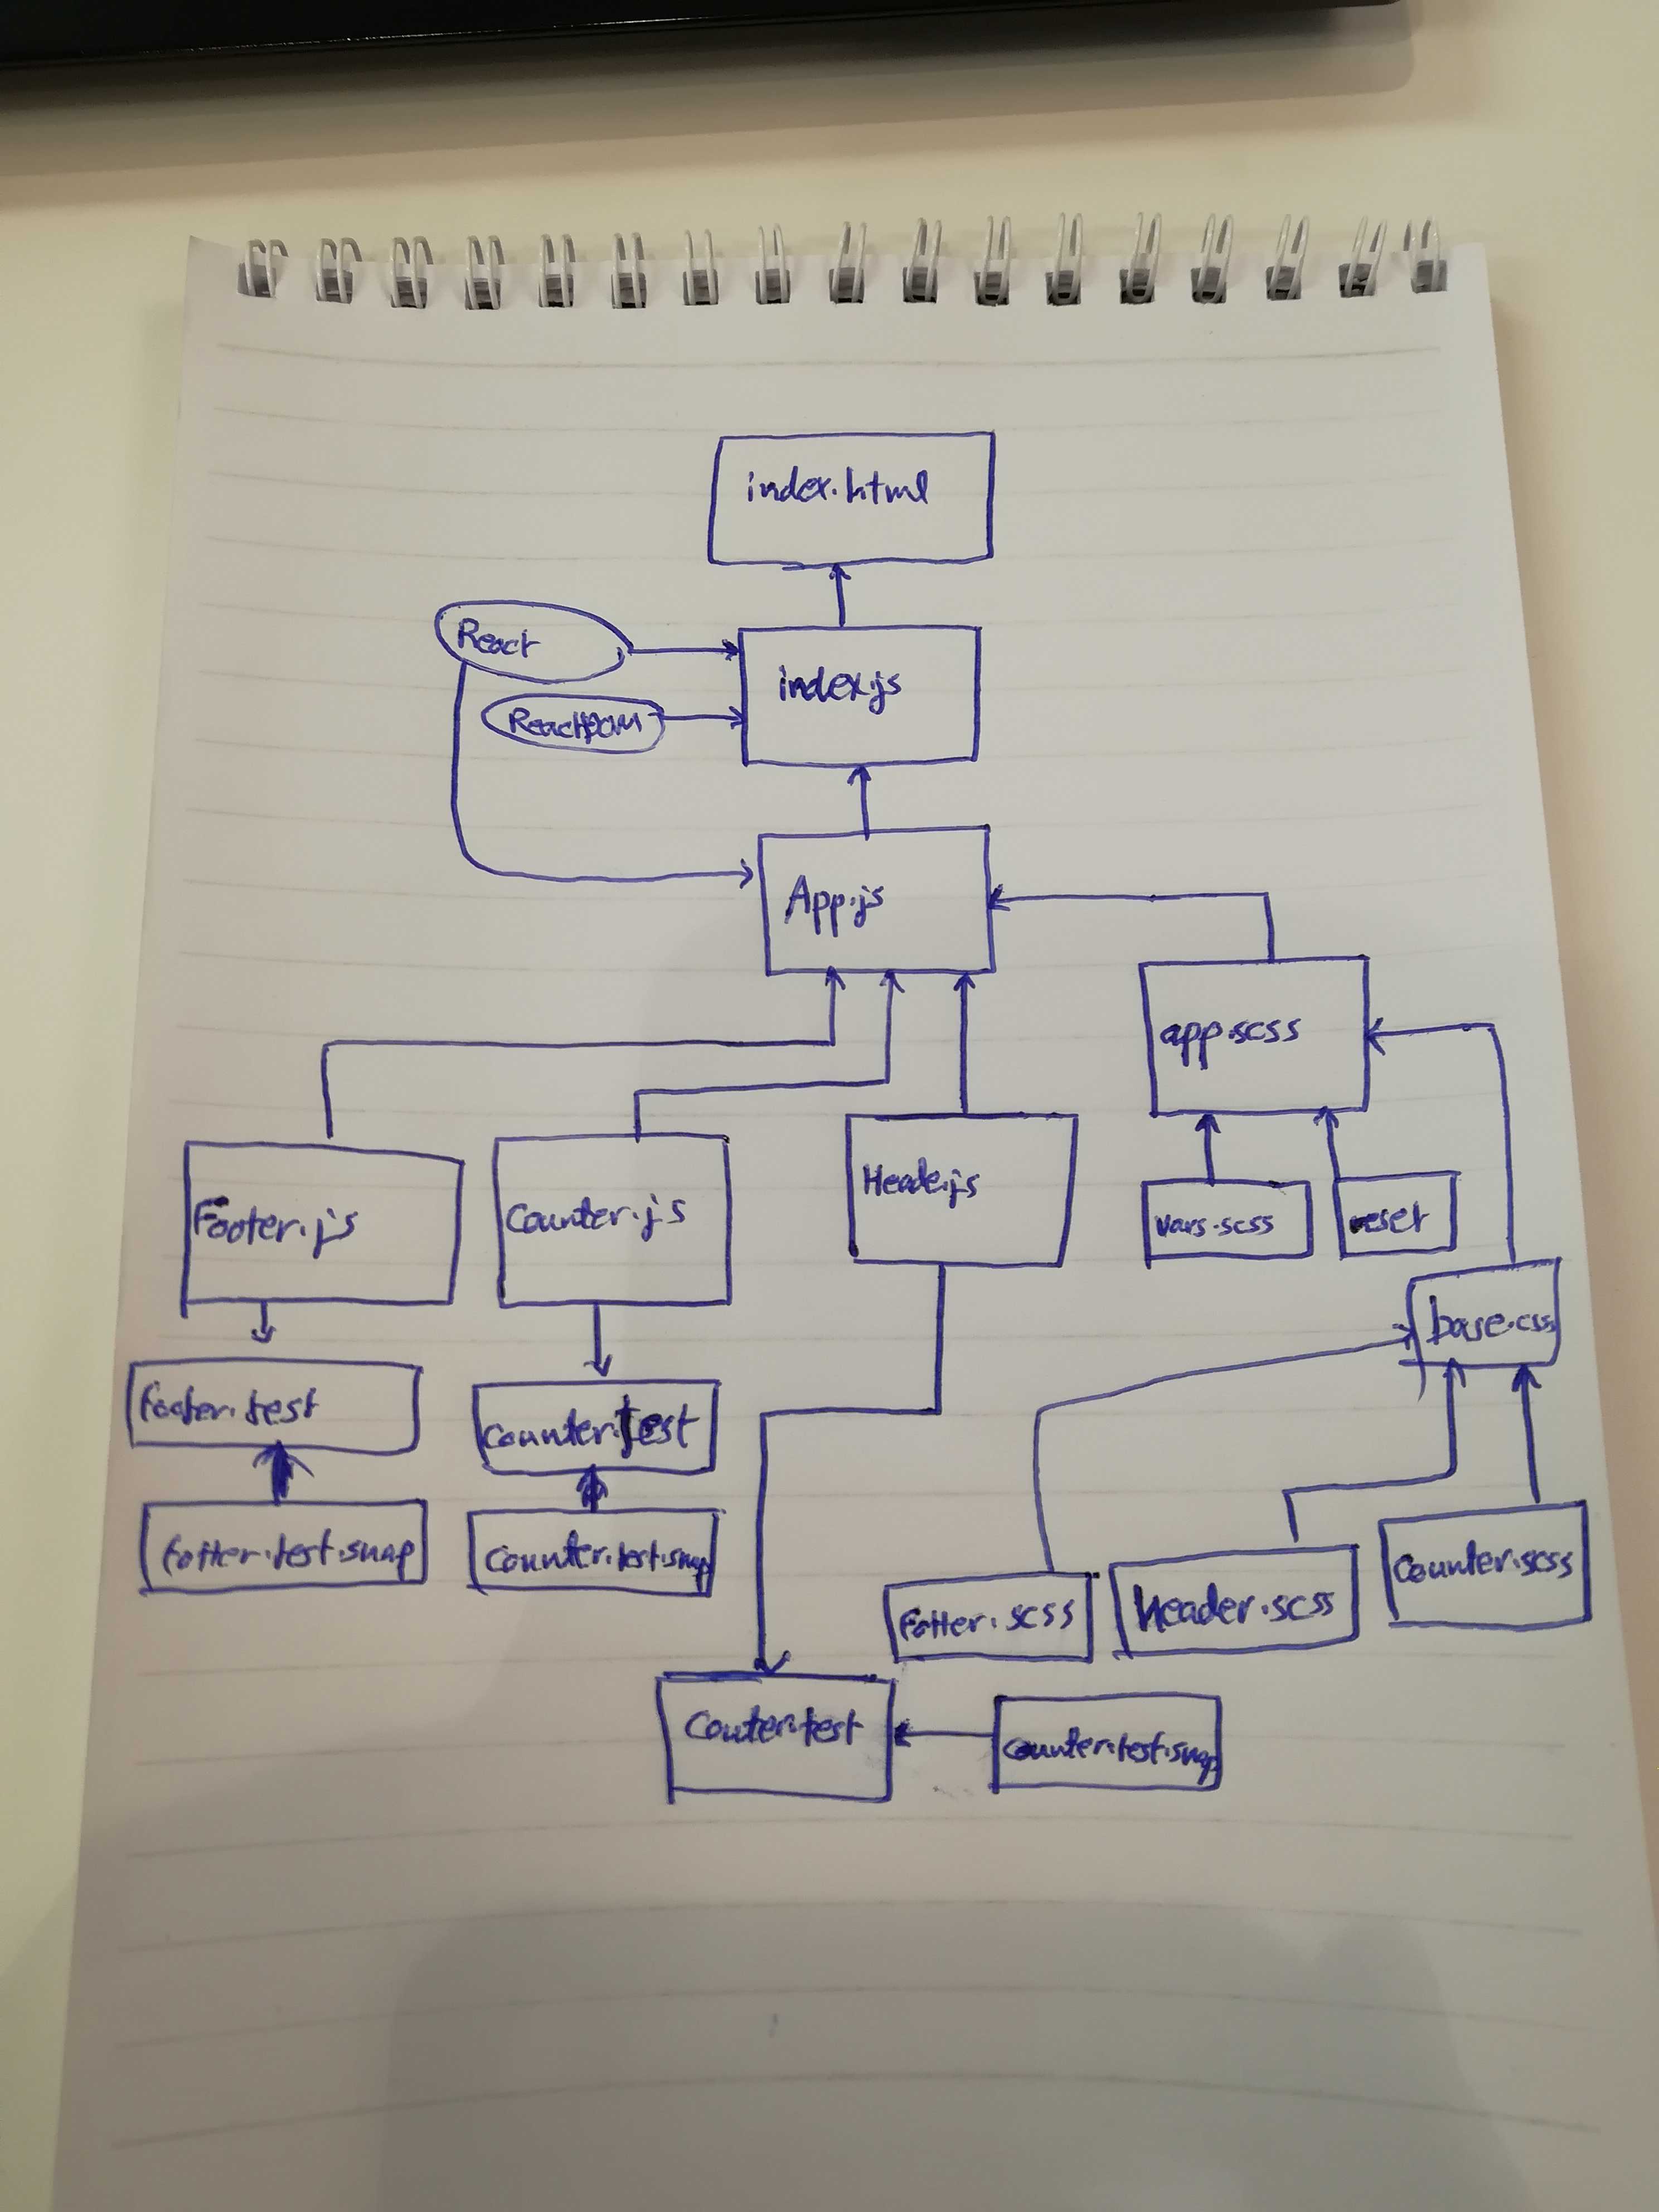 index.html
React
index.js
ReactDOM
App.js
app.scss
Footer.js
Counter.js
Heade.js
vars.scss
reset
base.css
footer.test
counter.test
fotter.test.snap
counter.test.snap
fotter.scss
header.scss
Counter.scss
Couter.test
counter.test.snap